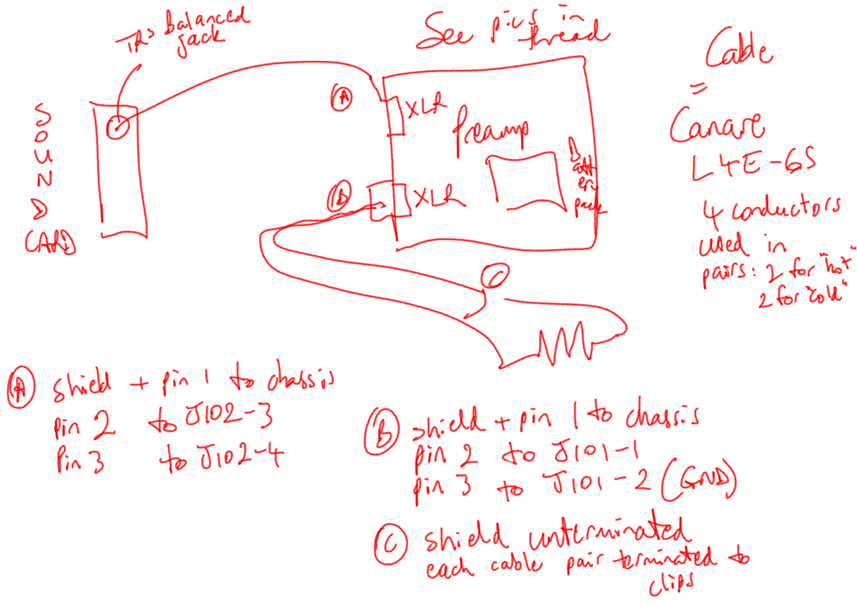 TRS Balanced
jack
See pics in
thread
Cable
=
Canare
L4E-6S
4 conductors
used in
pairs: 2 for "hot"
2 for "cold"
SOUND
CARD
A
XLR
Preamp
Battery
pack
B
XLR
C
A shield + pin 1 to chassis
pin 2 to J102-3
Pin 3 to J102-4
B shield + pin 1 to chassis
pin 2 to J101-1
pin 3 to J101-2 (GND)
C shield unterminated
each cable pair terminated to
clips